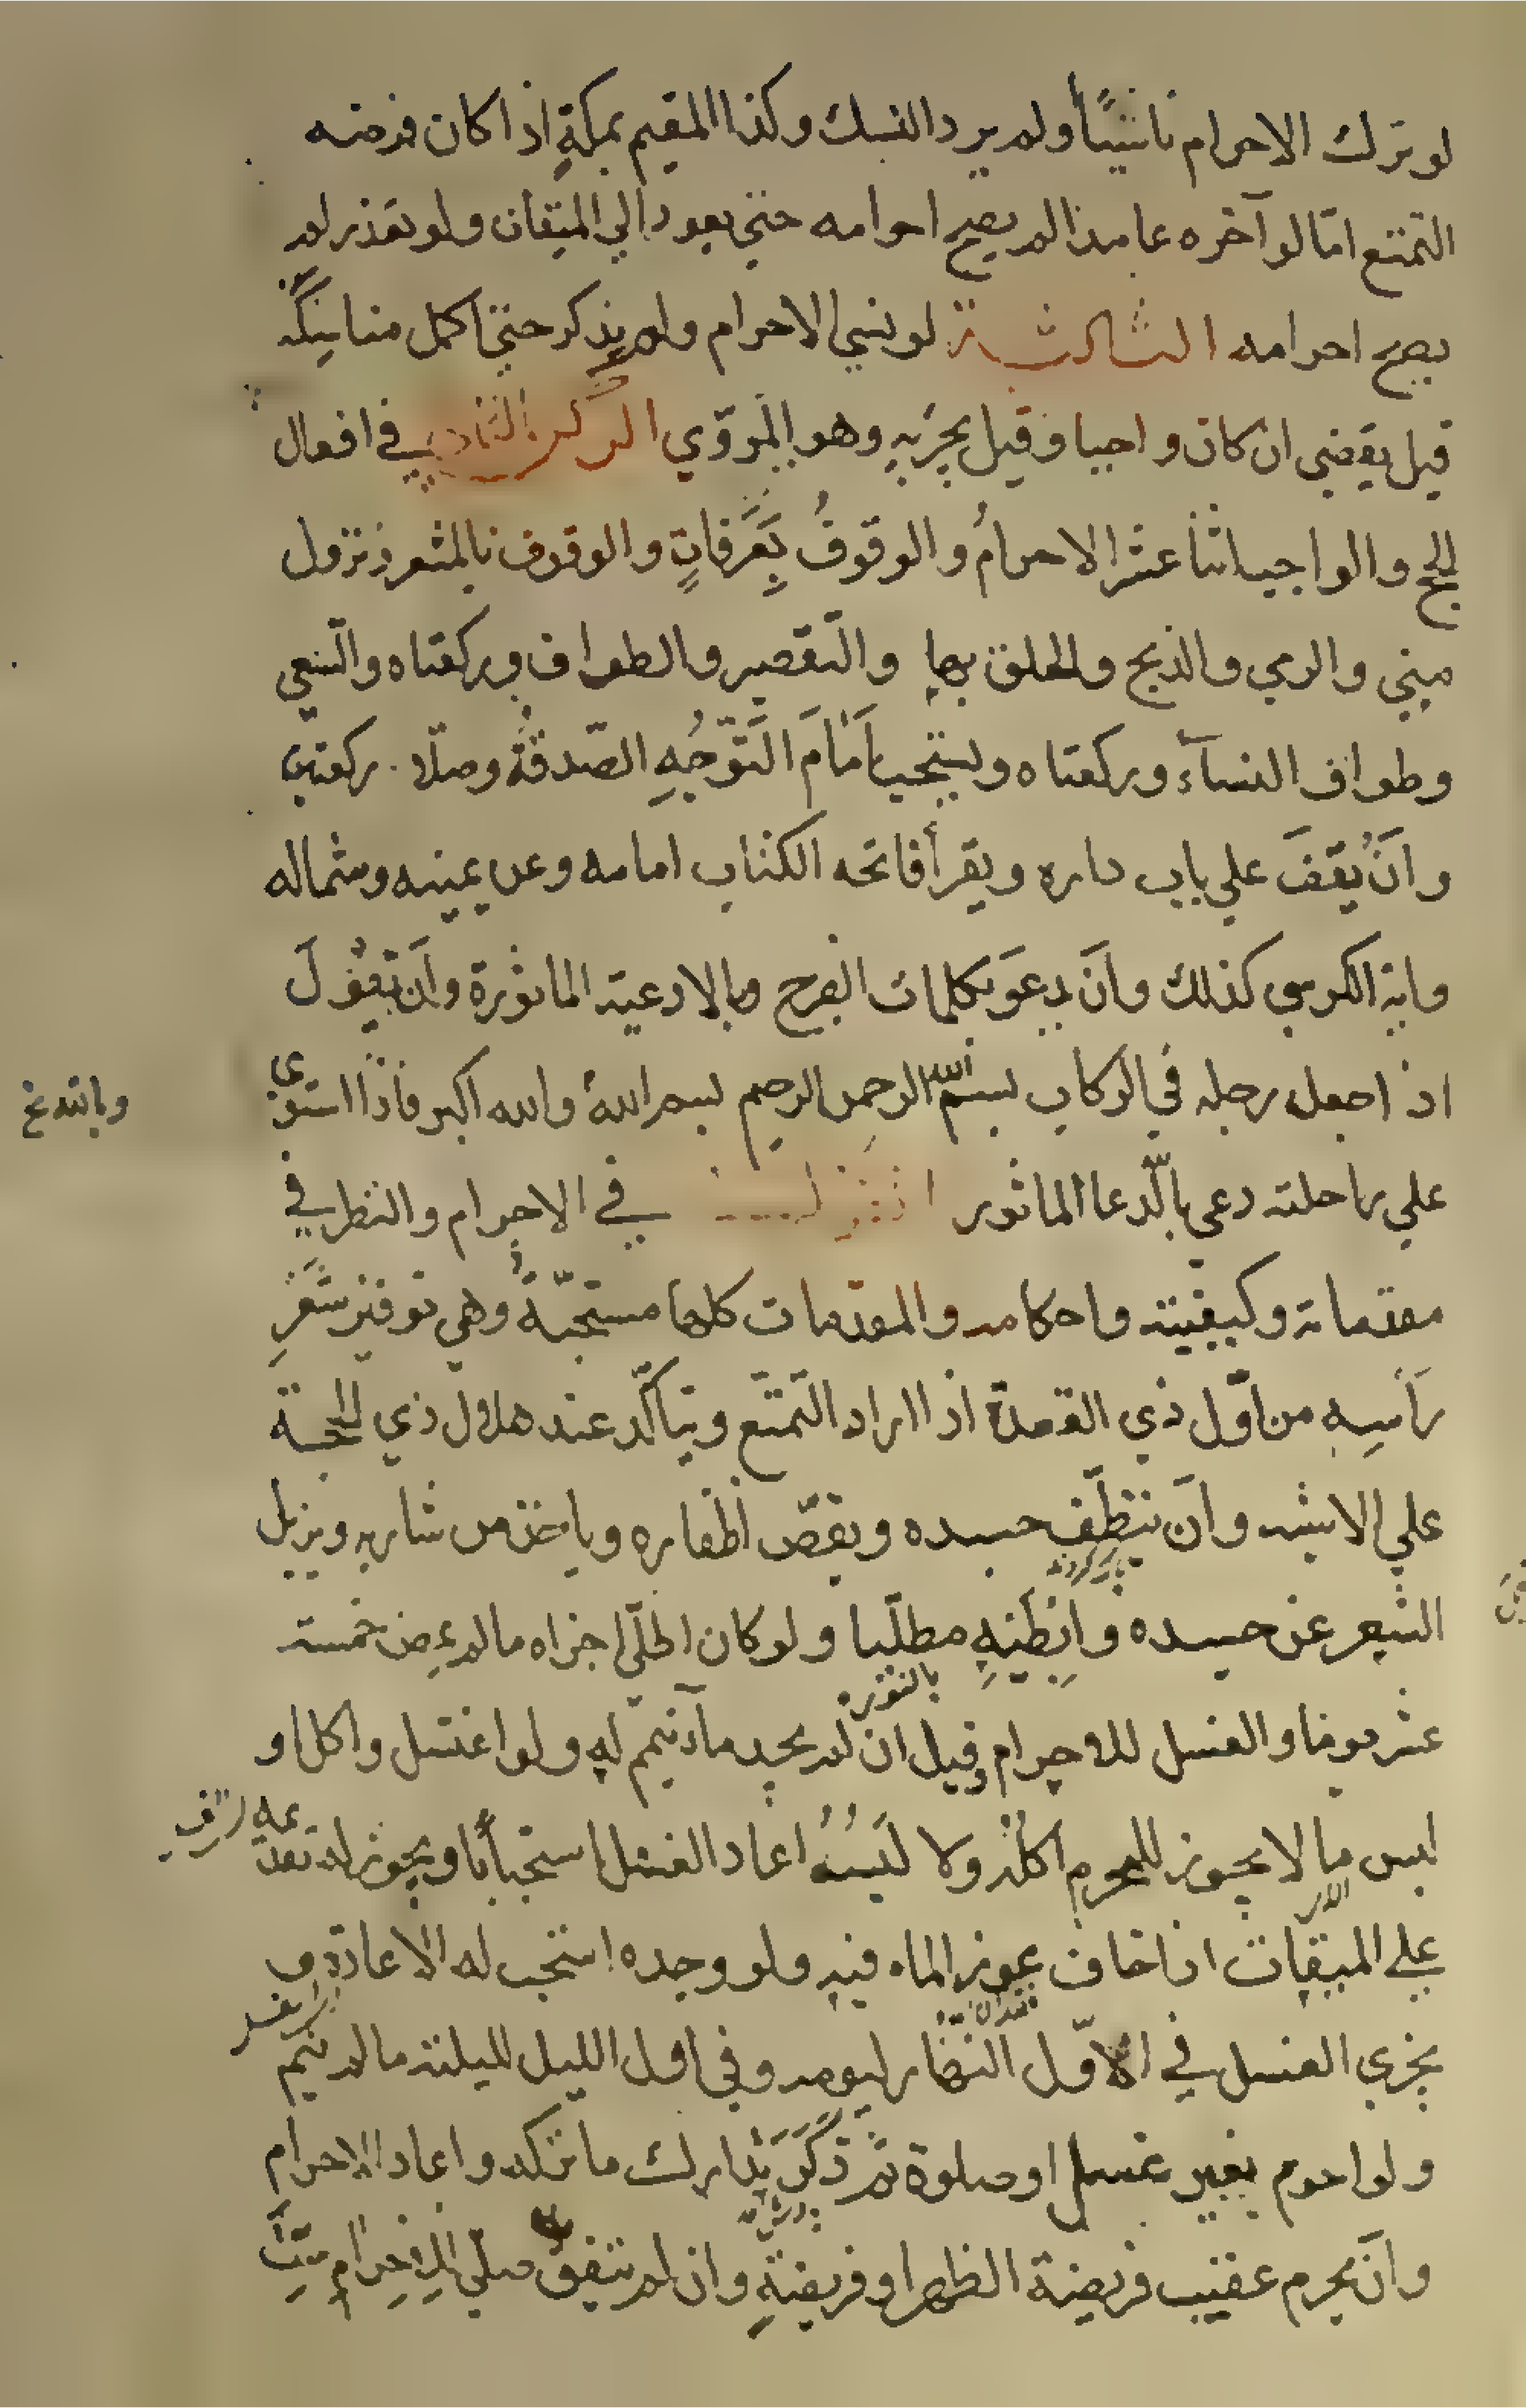 لو ترك الاحرام ناسيًا ولم يرد النسك وكذا المقيم بمكةٍ اذا كان فرضه
التمتع امّا لو آخره عامدا لم يصح احرامه حتي يعود الي الميقات ولو تعذر لم
يصح احرامه الثالثة لو نسي الاحرام ولم يذكر حتي اكمل مناسكه
قيل يقضي ان كان واجبا وقيل يجزيه وهو المروّي الركن الثاني في افعال
الحج والواجب اثنا عشر الاحرامُ والوقوفُ بِعَرَفاتٍ والوقوف بالمشعر ونزول
مني والرمي والذبح والحلق بها والتّقصير والطواف وركعتاه والسّعي
وطواف النسآء وركعتاه ويستحب اَمَامَ التَّوّجُهِ الصّدقةُ وصلاة ركعتين
وانَ يقفَ علي باب داره ويقرأ فاتحه الكتاب امامه وعن يمينه وشماله
واية الكرسي كذلك وانَ يدعَو بكلمات الفرج وبالادعية الماثورة وانَ يقولَ
اذا جعل رجله في الركاب بسم الله الرحمن الرحيم بسم الله والله اكبر فاذا استوى
علي راحلته دعي بالّدعا الماثور في الاحرام والنظر في
مقدماته وكيفيته واحكامه والمقدّمات كلها مستحبّةُ وهي توفير شَعَرِ
رَأسِهِ من اوّل ذي القعدة اذا اراد التَمتّع ويتاكّد عند هلال ذي الحجة
علي الاشبه وانَ ينظّف جسده ويقصّ اظفاره وياخذ من شاربه ويزيل
الشعر عن جسده وَاِبطَيهِ مطلّيا ولو كان اطلّي اجزاه ما لم يمض خمسة
بالنوره
عشر يوما والغسل للاحرام وقيل ان لم يجد مآء تيمم له ولو اغتسل واكل او
لبس ما لا يجوز للمحرم اكلُه ولا لبسُهُ اعاد الغسل استحباًبا ويجوز له تقديمه
علي الميقات اذا خاف عوز الماء فيه ولو وجده استحب له الاعادة و
يجزي الغسل في الاوّل النهار ليومه وفي اول الليل لليلته ما لم ينم
ولو احرم بغير غسل او صلوة ثم ذَكَرَ تدارك ما تركه واعاد الاحرام
وانَ يحرم عقيب فريضة الظهر او فريضةٍ وان لم يتفق صلّي للاِحِرام ستَّ